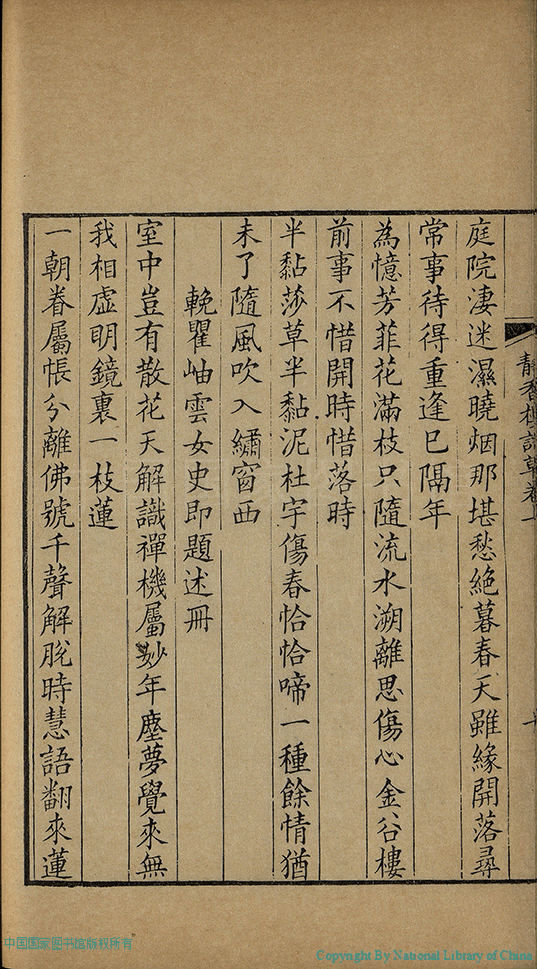 庭院淒迷濕曉烟那堪愁絶暮春天雖緣開落尋
常事待得重逢已隔年
為憶芳菲花滿枝只隨流水溯離思傷心金谷樓
前事不惜開時惜落時
半黏莎草半黏泥杜宇傷春恰恰啼一種餘情猶
未了隨風吹入繡窗西
輓瞿岫雲女史即題述冊
室中豈有散花天解識禪機屬妙年塵夢覺來無
我相虛明鏡裏一枝蓮
一朝眷屬悵分離佛號千聲解脫時慧語翻來蓮
中国国家图书馆版权所有
Copyright By National Library of China